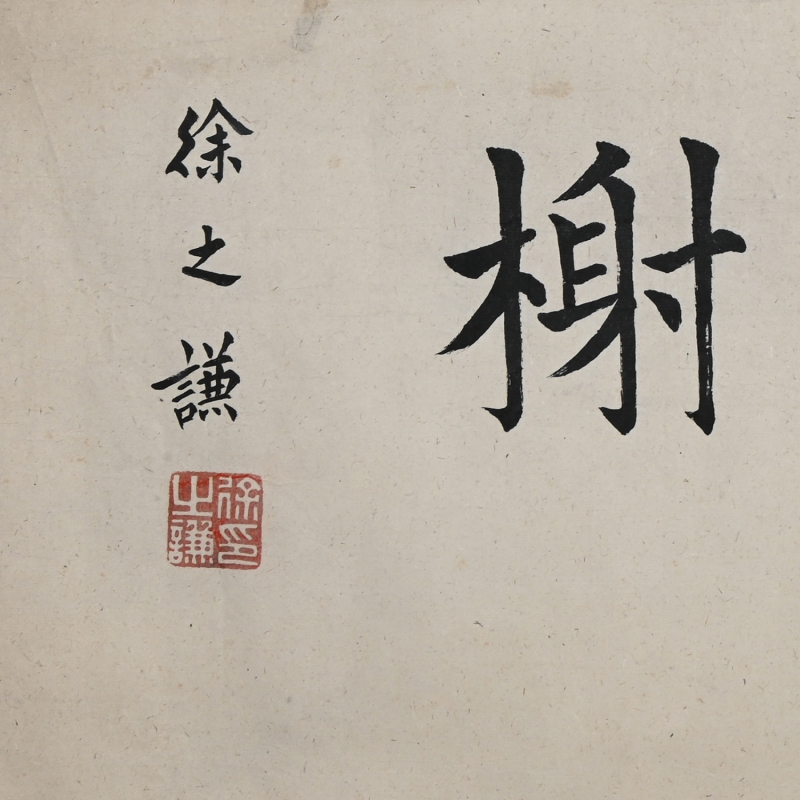 榭
徐之謙
徐印
之謙